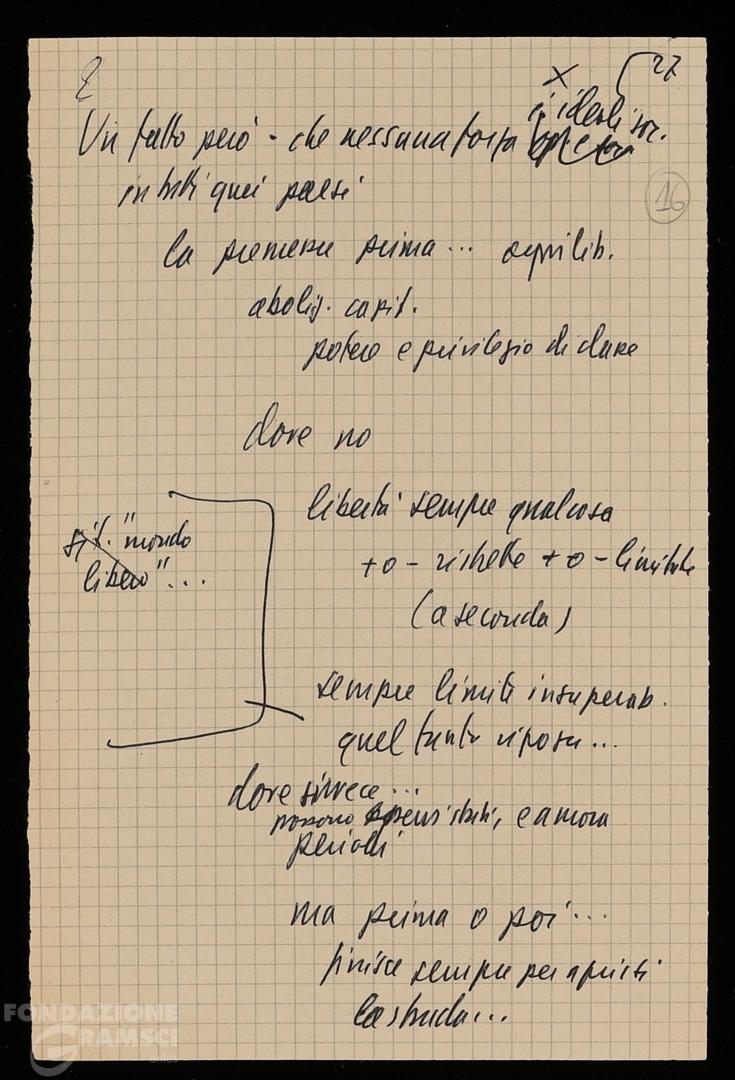 27
2
x
i ideali soc.
Un fatto però - che nessuna forza
in tutti quei paesi
16
la premessa prima... equilib.
aboliz. capit.
potere e privilegio di classe
dove no
libertà sempre qualcosa
sist. "mondo
libero"...
+ o - ristrette + o - limitate
(a seconda)
sempre limiti insuperab.
quel tanto riposa...
dove invece...
possono esservi stati, e ancora
periodi
ma prima o poi...
finisce sempre per aprirsi
la strada...
FONDAZIONE
GRAMSCI
ONLUS